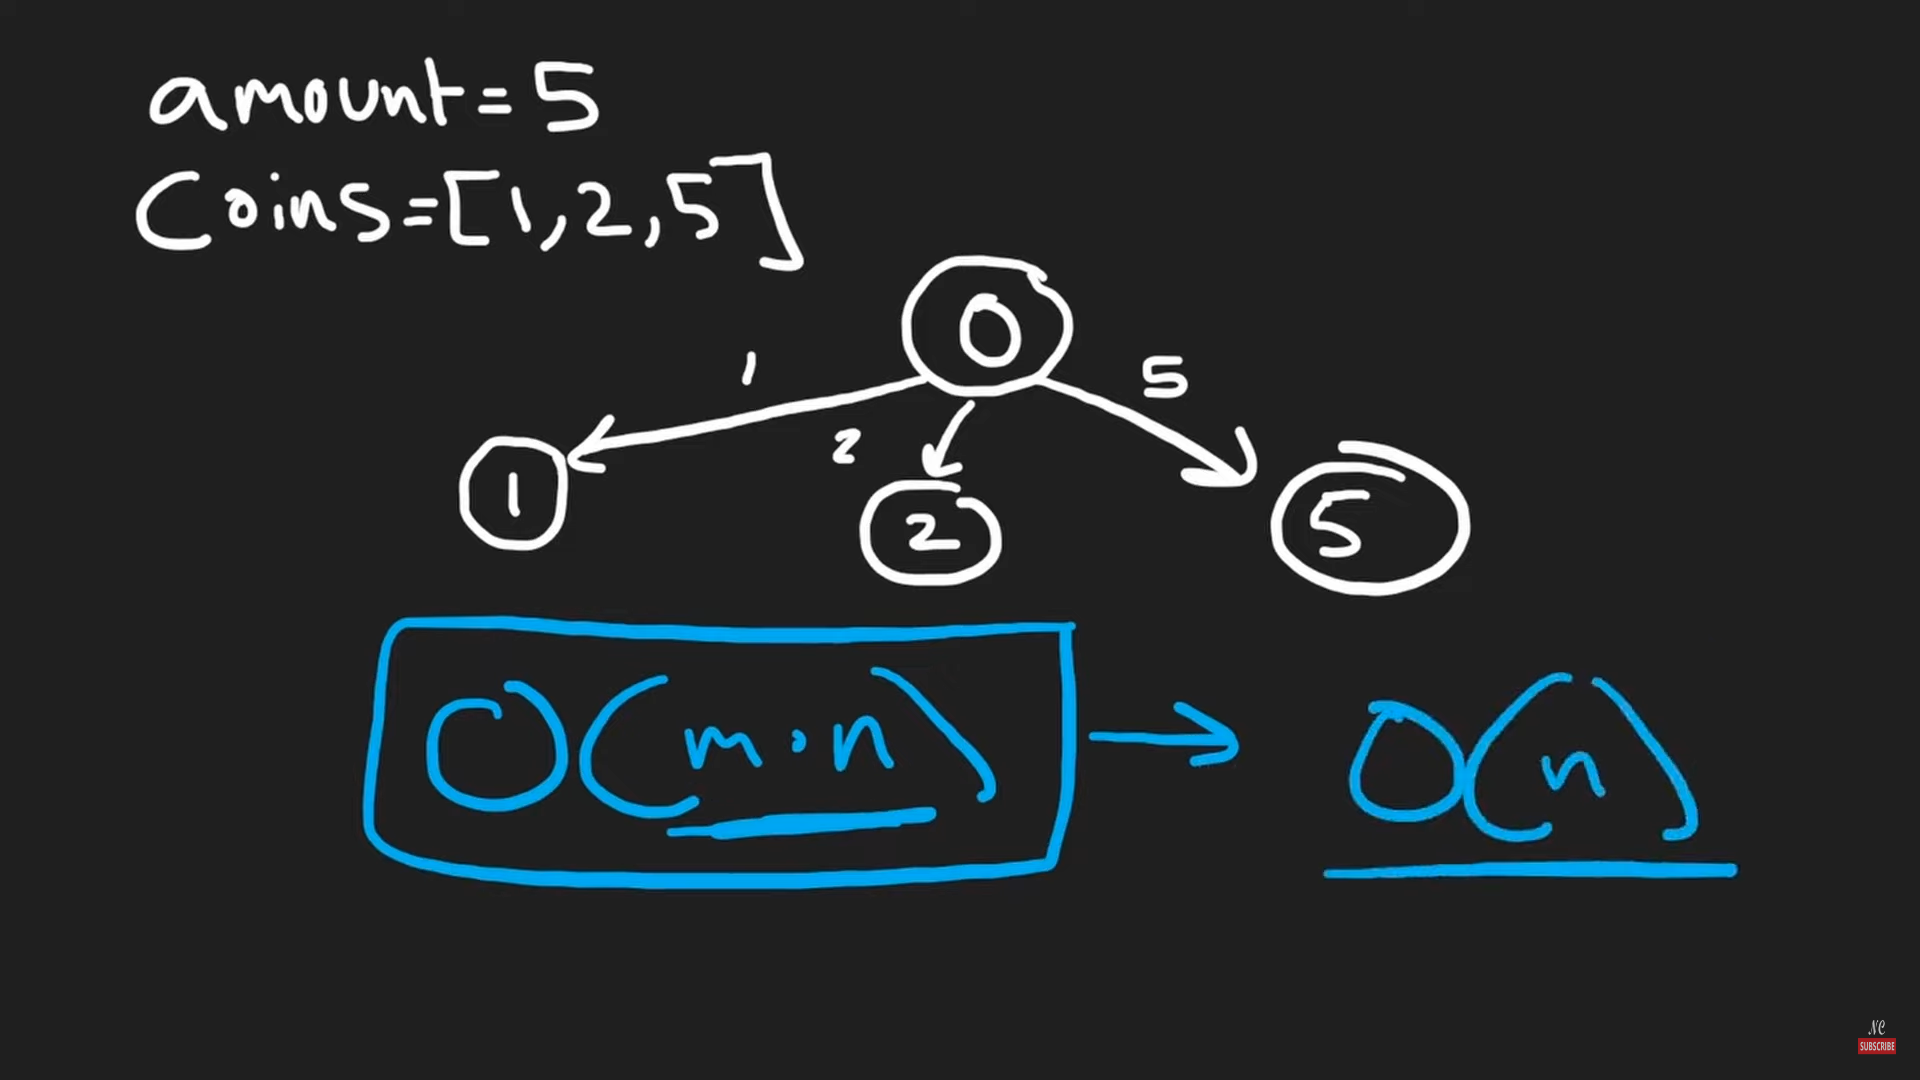 amount=5
Coins=[1,2,5]
0
1
2
5
1
2
5
O(m·n) → O(n)
NC
SUBSCRIBE